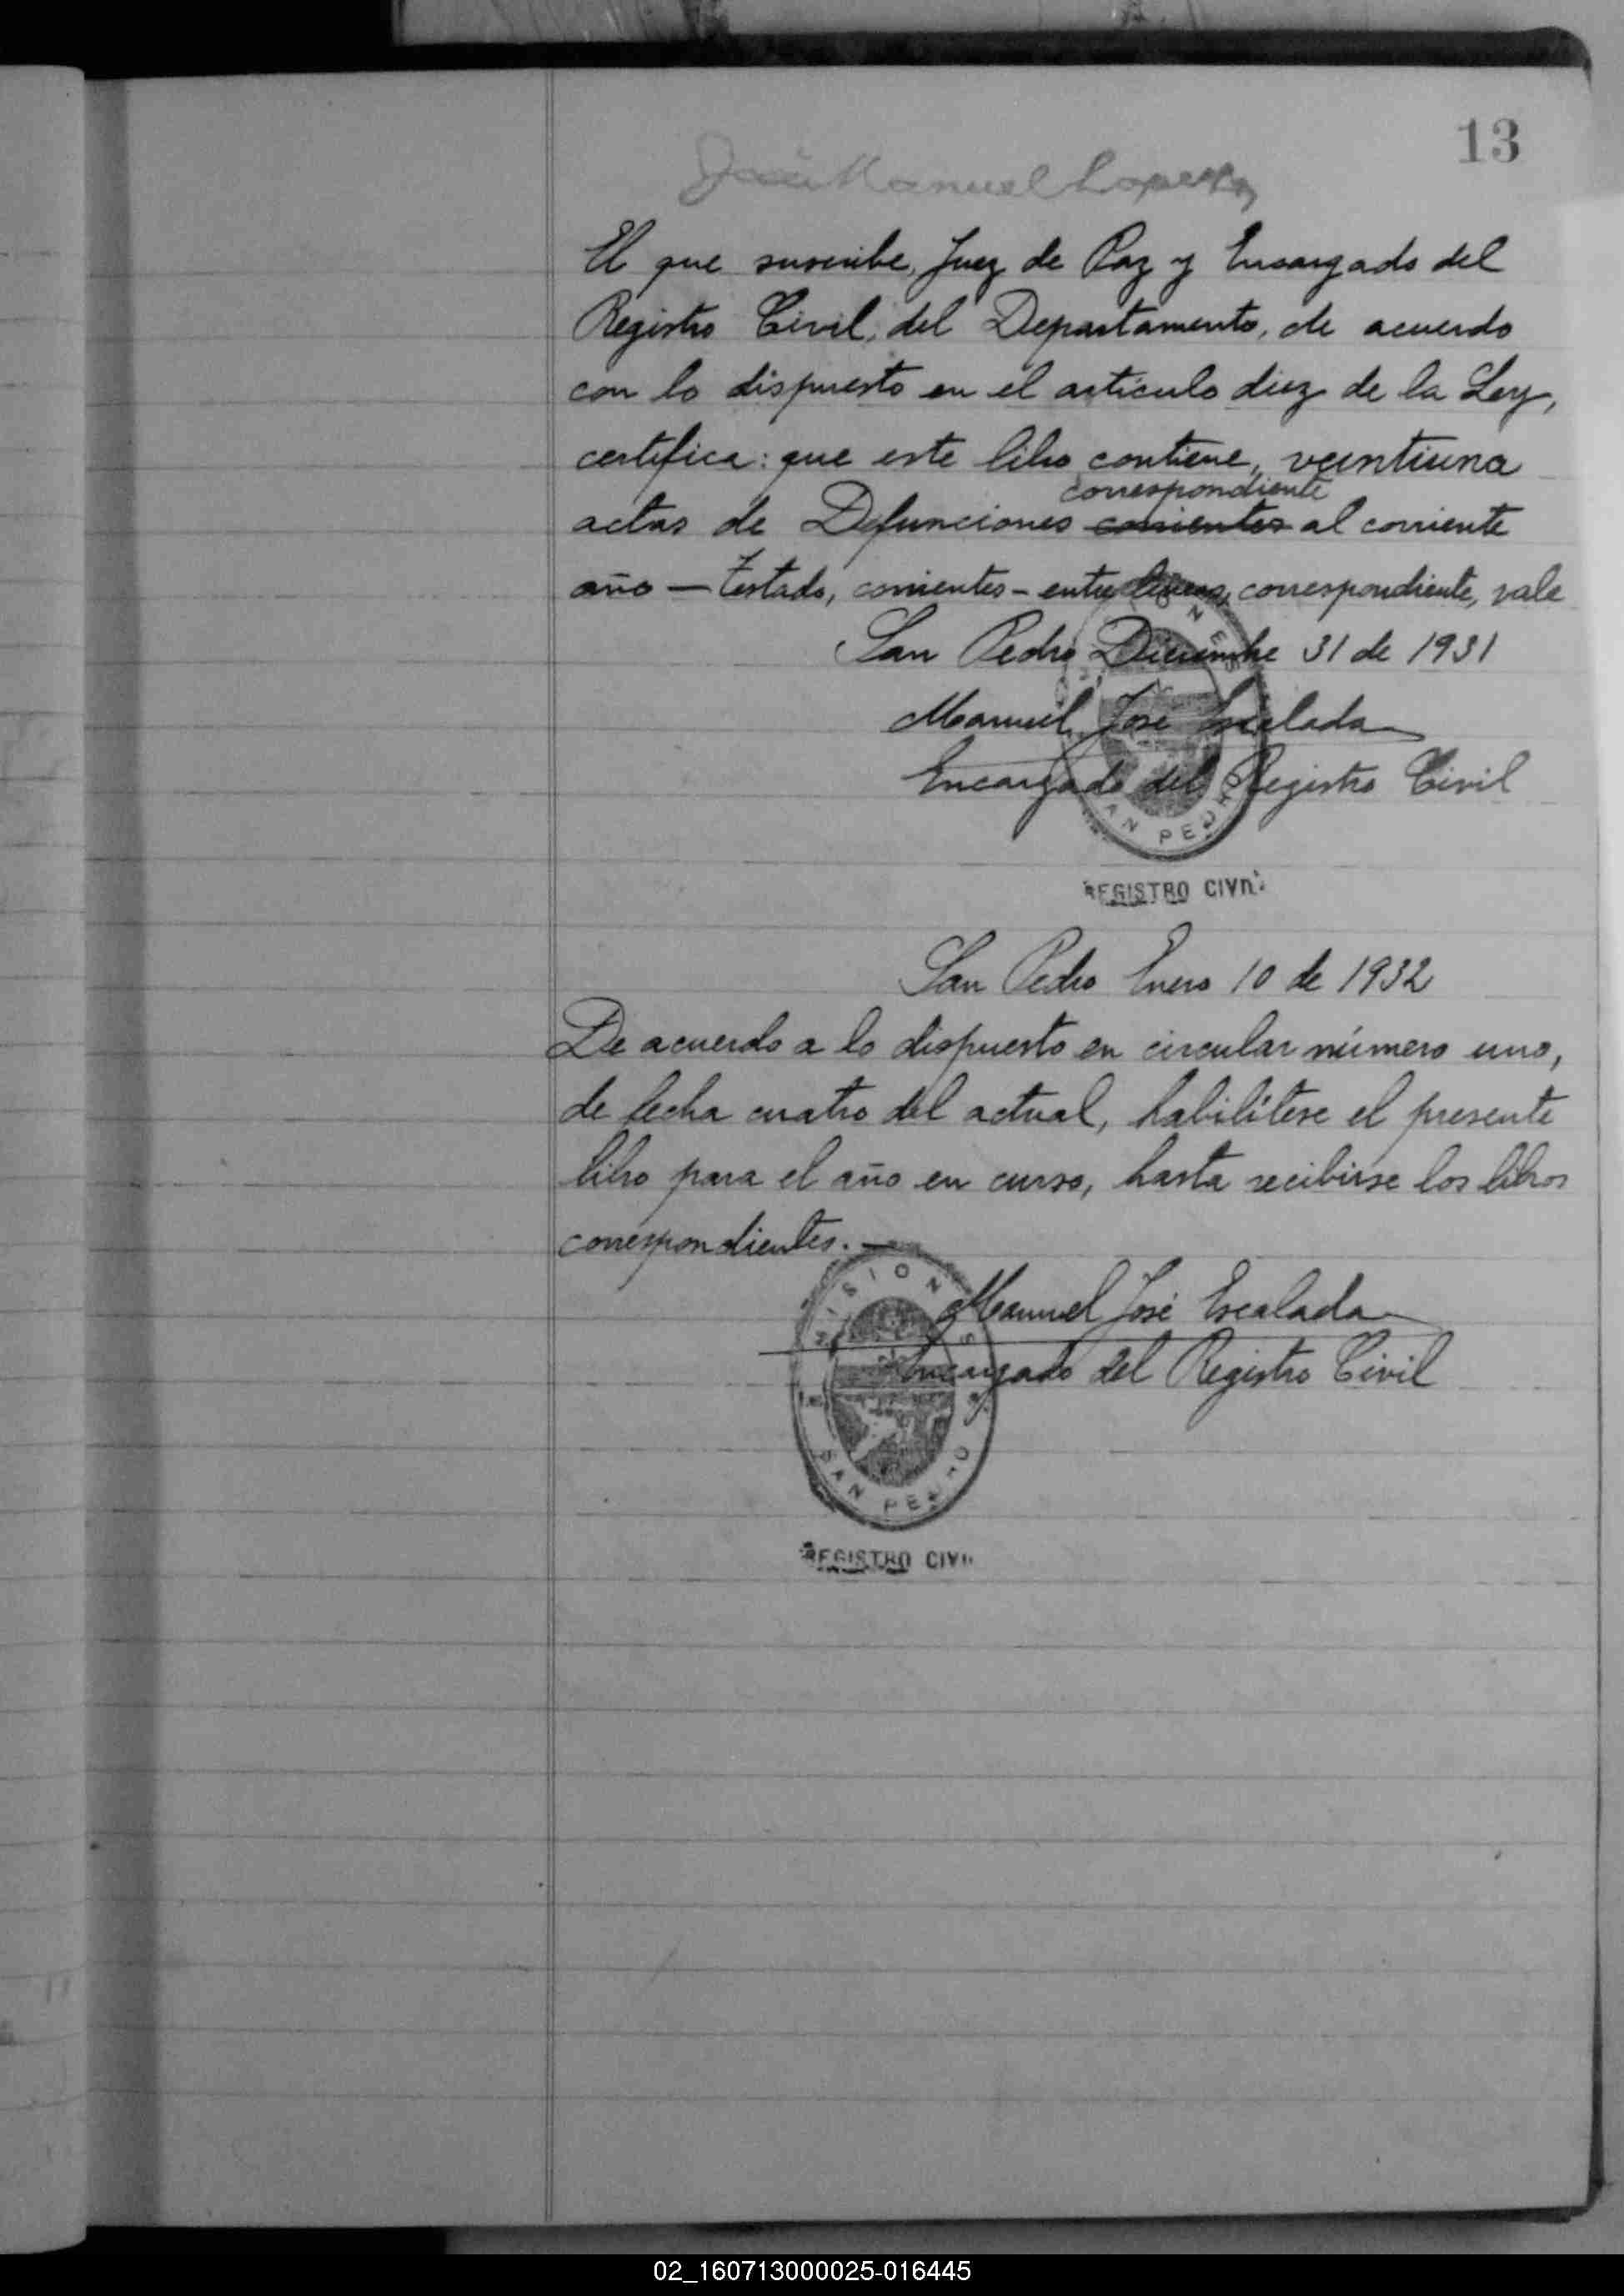 13
José Manuel Lopez
El que suscribe, Juez de Paz y Encargado del
Registro Civil, del Departamento, de acuerdo
con lo dispuesto en el artículo diez de la Ley,
certifica: que este libro contiene, veintiuna
correspondiente
actas de Defunciones corrientes al corriente
año — Testado, corrientes - entre lineas, correspondiente, vale
San Pedro, Diciembre 31 de 1931
Manuel José Escalada
Encargado del Registro Civil
SAN PEDRO
REGISTRO CIVIL
San Pedro Enero 10 de 1932
De acuerdo a lo dispuesto en circular número uno,
de fecha cuatro del actual, habilítese el presente
libro para el año en curso, hasta recibirse los libros
correspondientes. —
MISIONES
Manuel José Escalada
Encargado del Registro Civil
SAN PEDRO
REGISTRO CIVIL
02_160713000025-016445